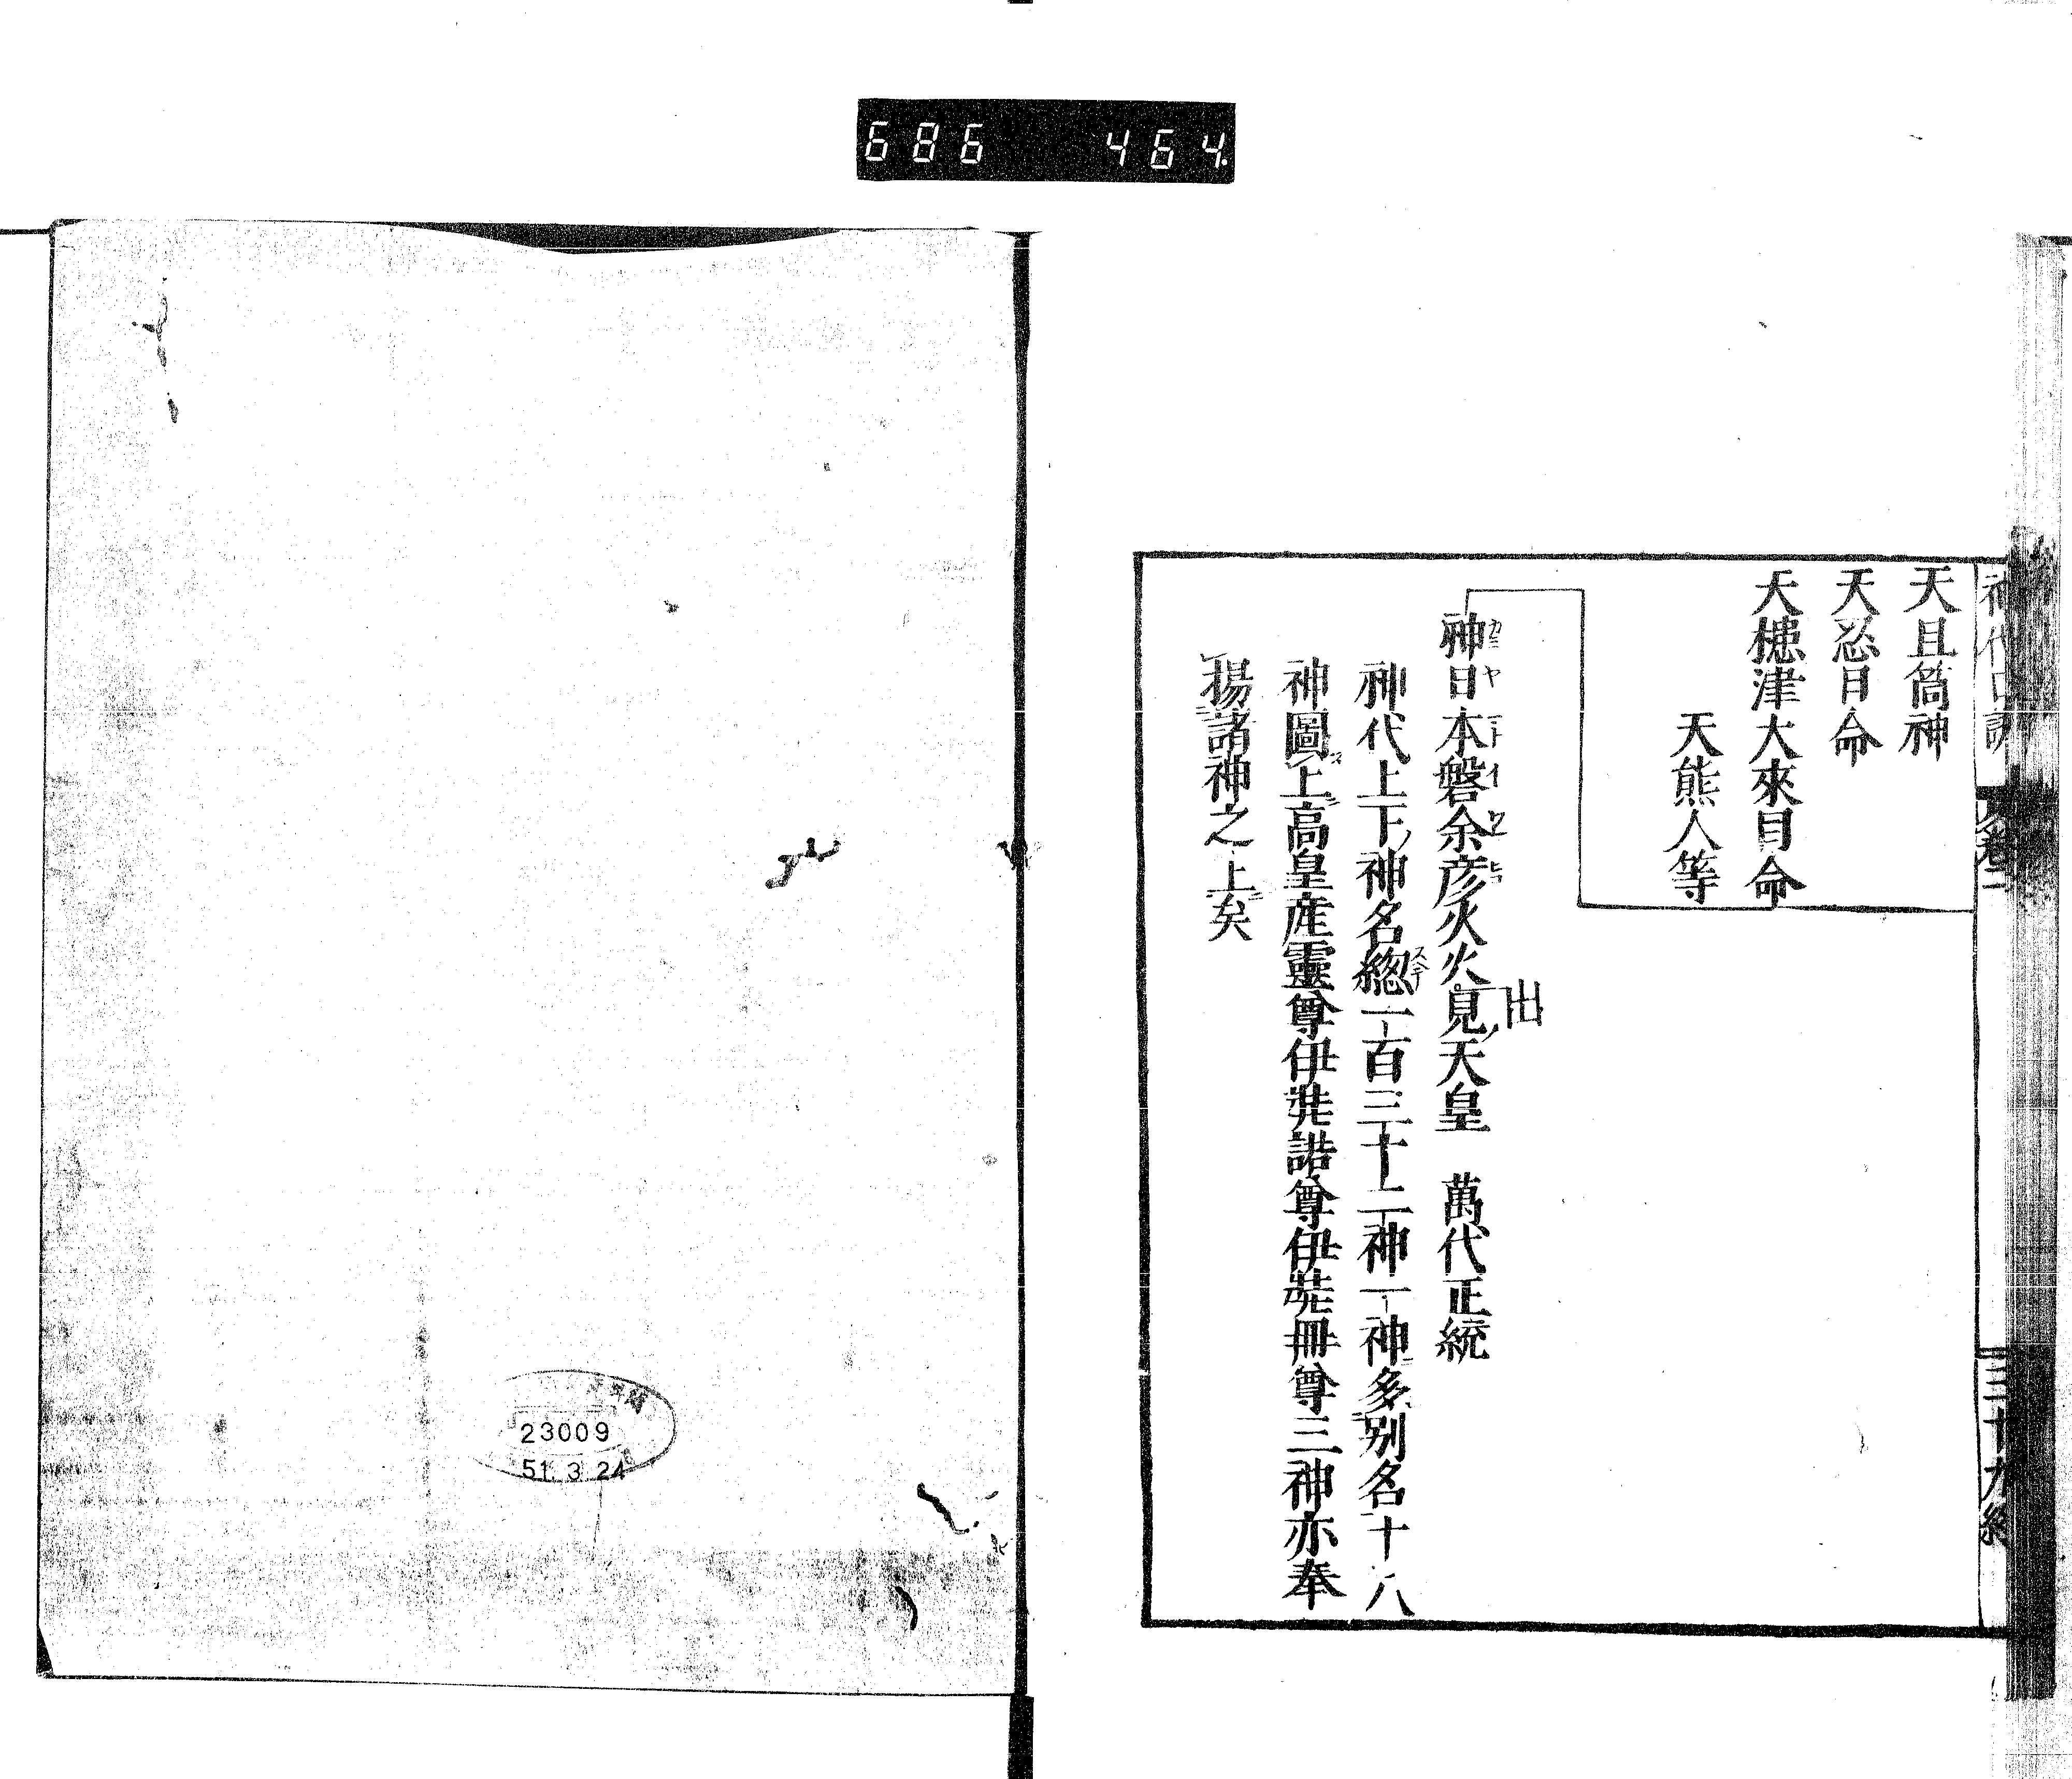 686 464
天且筒神
天忍日命
天槵津大來目命
天熊人等
神日本磐余彦火火出見天皇 萬代正統
神代上下神名總一百三十二神一神多別名十八
神圖上高皇産靈尊伊弉諾尊伊弉冊尊三神亦奉
揚諸神之上矣
三十九終
23009
51.3.24